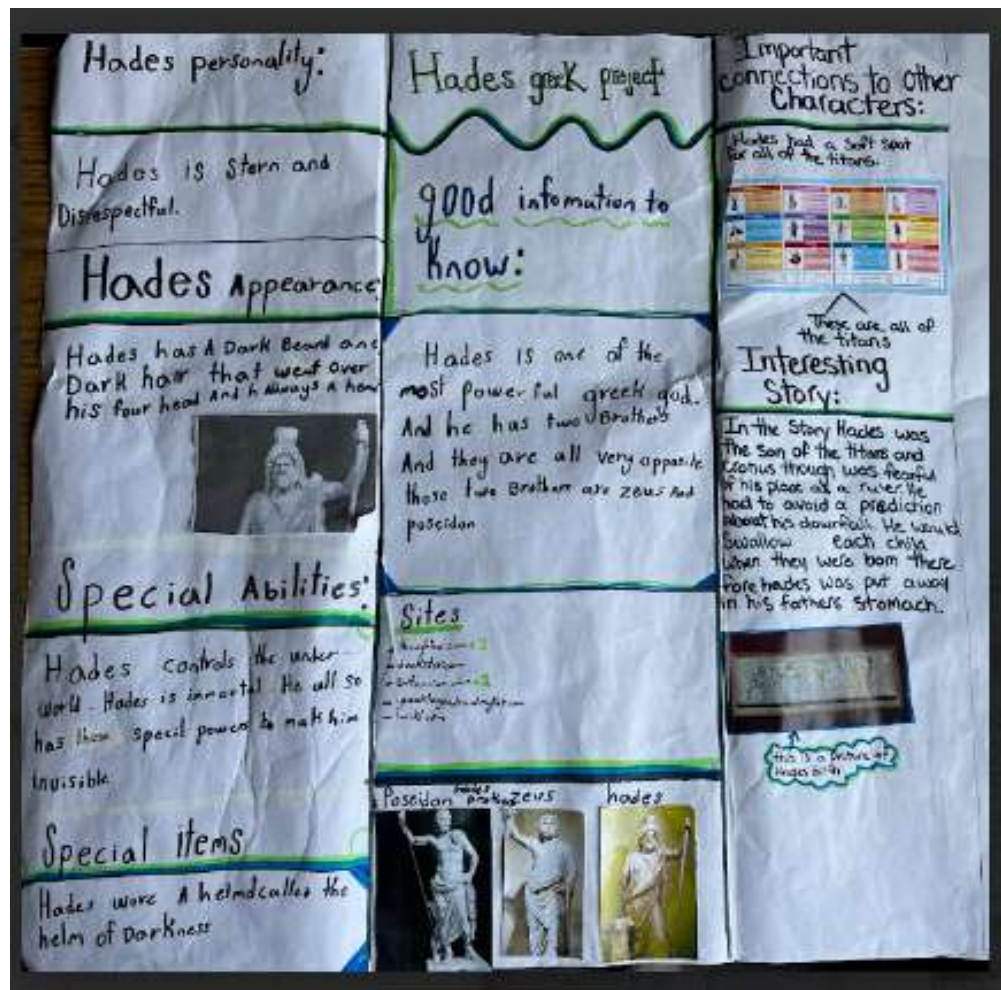 Hades personality:
Hades is Stern and
Disrespectful.
Hades Appearance
Hades has A Dark Beard and
Dark hair that went over
his four head And h always a
Special Abilities:
Hades controls the under-
world. Hades is immortal. He all so
has these special powers to make him
invisible
Special items
Hades wore A helmd called the
helm of Darkness
Hades greek project
good infomation to
Know:
Hades is one of the
most powerful greek god.
And he has two Brothers
And they are all very opposite
those two Brothers are zeus And
poseidon
Sites
Poseidan
zeus
hades
Important
connections to other
Characters:
Hades had a soft spot
for all of the titans.
These are all of
the titans
Interesting
Story:
In the Story Hades was
the son of the titans and
cronus though was fearful
of his place as a ruler. He
had to avoid a prediction
about his downfall. He would
Swallow each child
when they were born there
fore hades was put away
in his fathers stomach.
this is a picture of
Hades birth